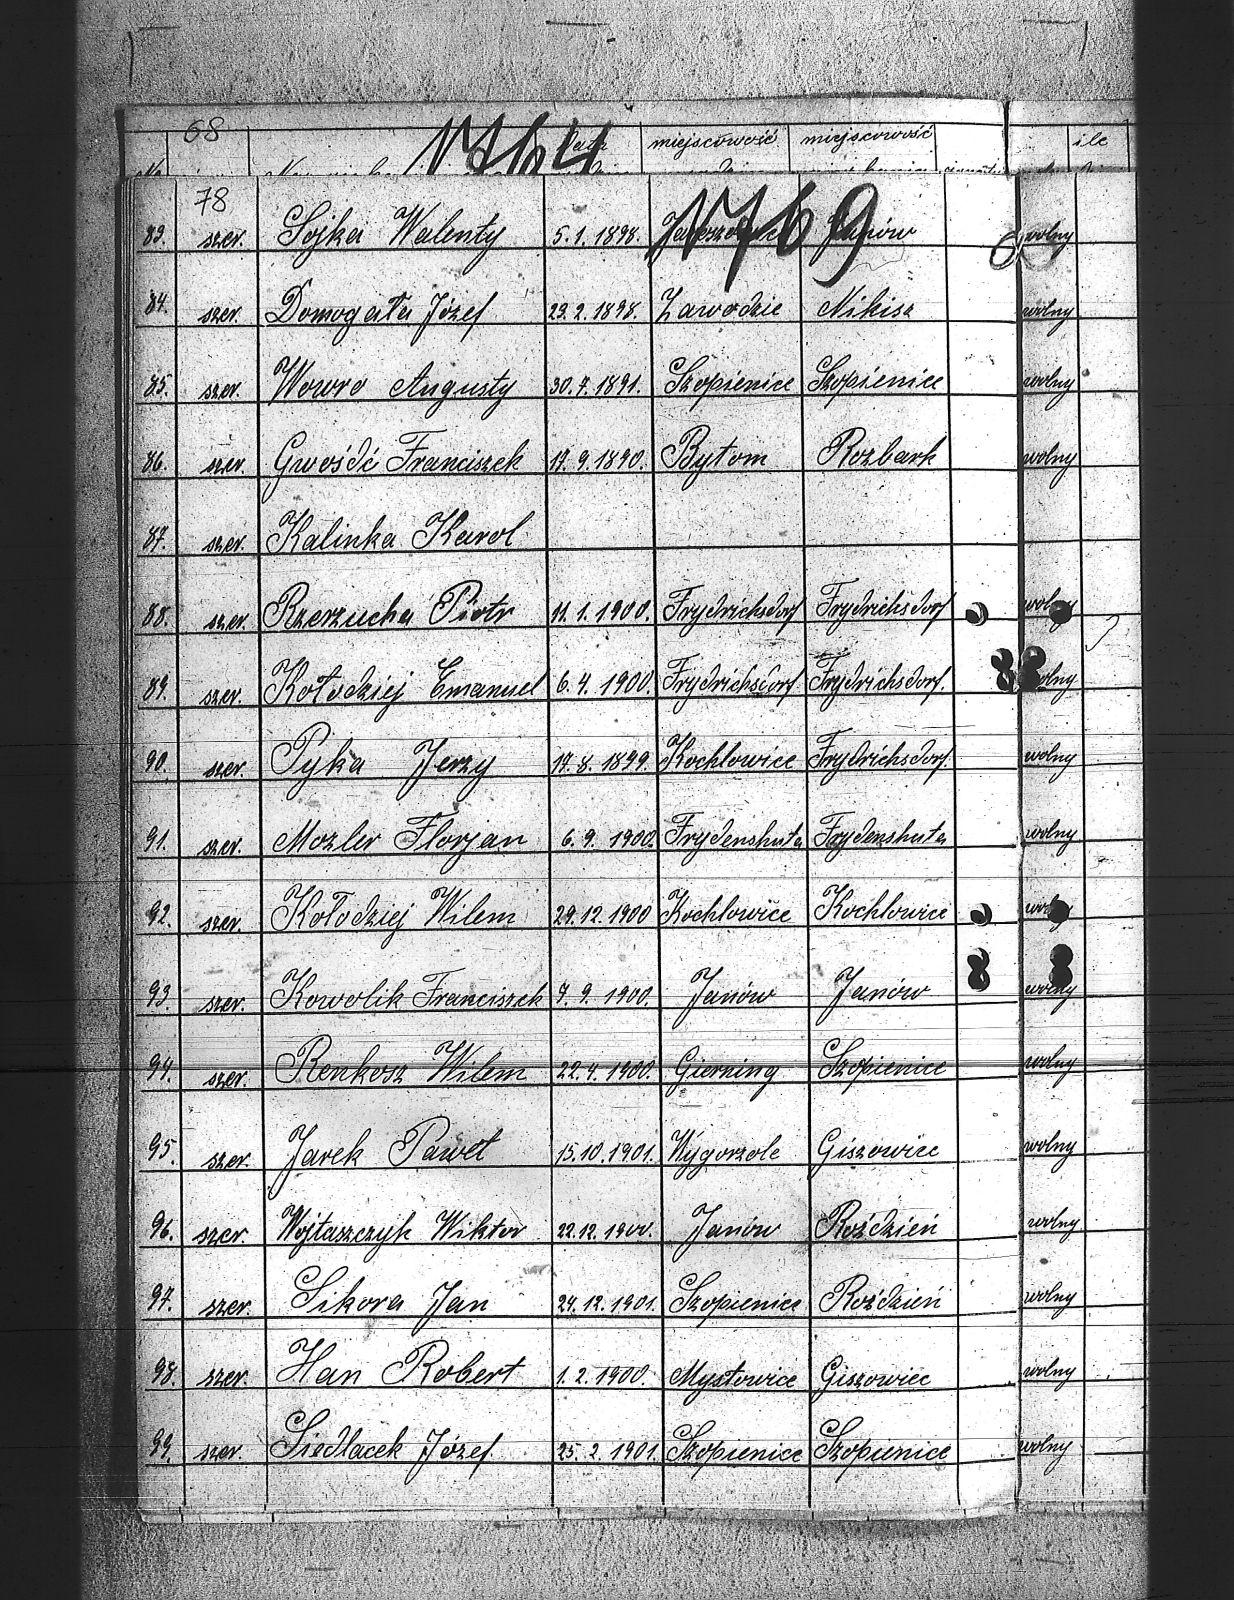 68 1764 miejscowość miejscowość ile
78 1769
83. szer. Sojka Walenty 5.1.1898. Janów wolny
84. szer. Domogała Józef 23.2.1898. Zawodzie Nikisz wolny
85. szer. Wowro Augusty 30.7.1891. Szopienice Szopienice wolny
86. szer. Gwośdć Franciszek 17.9.1890. Bytom Rozbark wolny
87. szer. Kalinka Karol
88. szer. Rzerzucha Piotr 11.1.1900. Frydrichsdorf Frydrichsdorf wolny
89. szer. Kołodziej Emanuel 6.4.1900 Frydrichsdorf Frydrichsdorf. wolny
90. szer. Pyka Jerzy 17.8.1899. Kochlowice Frydrichsdorf. wolny
91. szer. Mozler Florjan 6.9.1900. Frydenshuta Frydenshuta wolny
92. szer. Kołodziej Wilem 29.12.1900 Kochlowice Kochlowice wolny
93. szer. Kowolik Franciszek 7.9.1900. Janów Janów wolny
94. szer. Renkosz Wilem 22.4.1900. Gierning Szopienice wolny
95. szer. Jarek Paweł 15.10.1901. Wygorzole Giszowiec wolny
96. szer. Wojtaszczyk Wiktor 22.12.1900. Janów Roździeń wolny
97. szer. Sikora Jan 24.12.1901. Szopienice Roździeń wolny
98. szer. Han Robert 1.2.1900. Mysłowice Giszowiec wolny
99. szer. Siedlacek Józef 25.2.1901. Szopienice Szopienice wolny